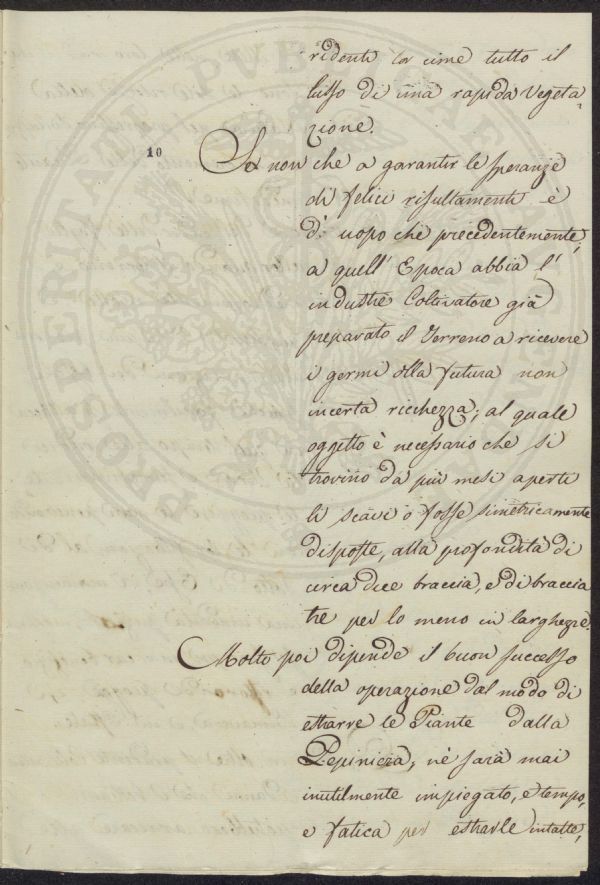 ridenti lor cime tutto il
lusso di una rapida vegeta-
zione.
10
Se non che a garantir le speranze
di felici risultamenti è
d' uopo che precedentemente,
a quell' Epoca abbia l'
industre Coltivatore già
preparato il Terreno a ricevere
i germi della futura non
incerta ricchezza; al quale
oggetto è necessario che si
trovino da più mesi aperti
li scavi o fosse simetricamente
disposte, alla profondità di
circa due braccia, e di braccia
tre per lo meno in larghezze.
Molto poi dipende il buon successo
della operazione dal modo di
estrarre le Piante dalla
Pepiniera; nè sarà mai
inutilmente impiegato, e tempo,
e fatica per estrarle intatte,
PROSPERITATI PVBLICAE